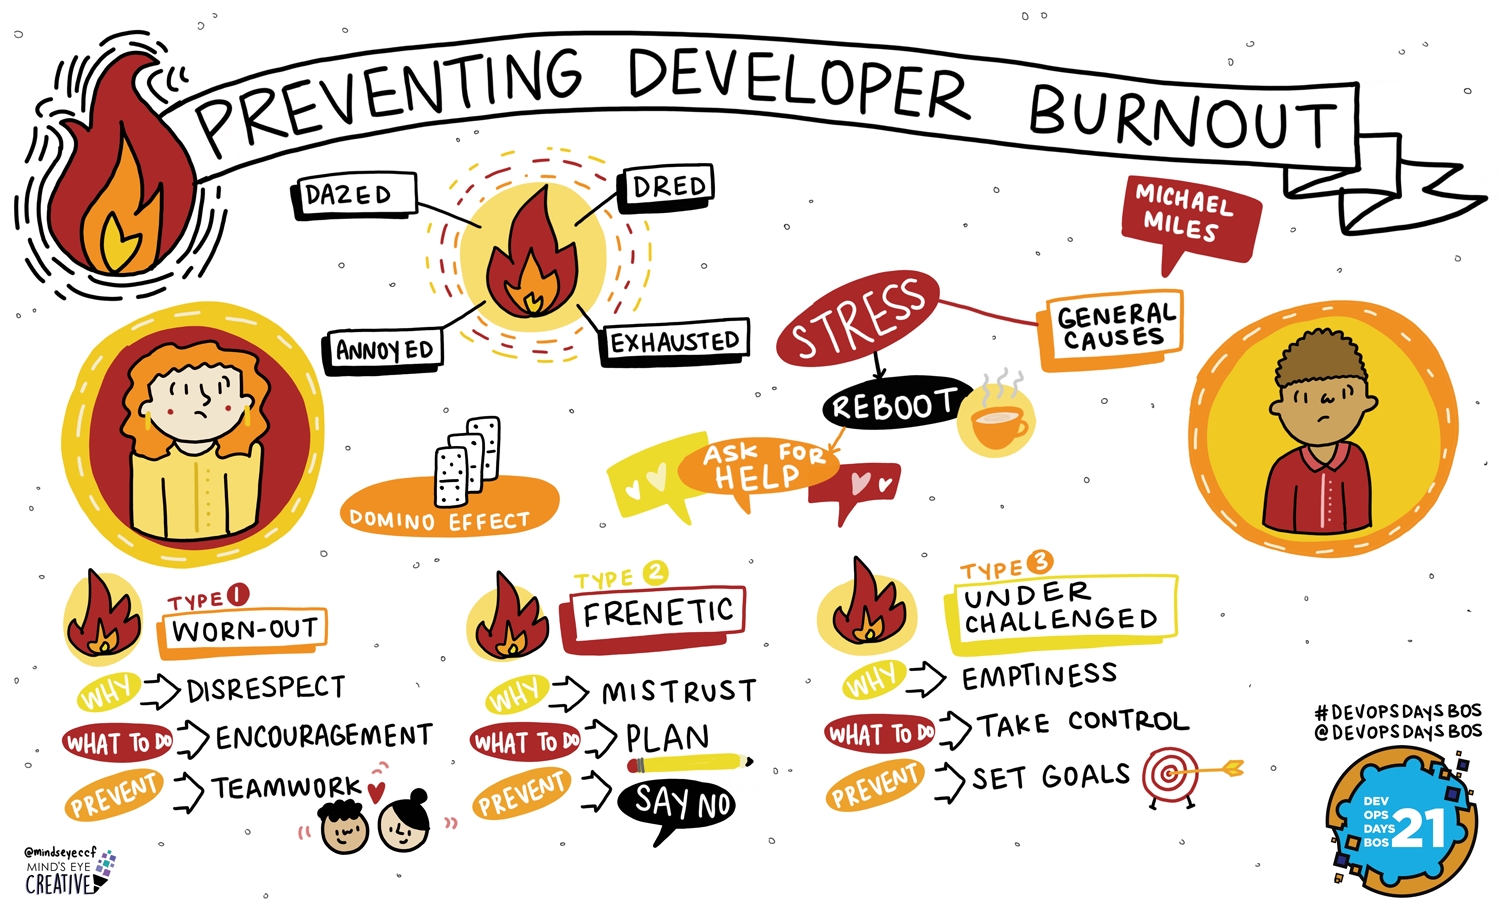 PREVENTING DEVELOPER BURNOUT
DAZED
DRED
ANNOYED
EXHAUSTED
MICHAEL
MILES
STRESS
GENERAL
CAUSES
REBOOT
ASK FOR
HELP
DOMINO EFFECT
TYPE 1
WORN-OUT
WHY
DISRESPECT
WHAT TO DO
ENCOURAGEMENT
PREVENT
TEAMWORK
TYPE 2
FRENETIC
WHY
MISTRUST
WHAT TO DO
PLAN
PREVENT
SAY NO
TYPE 3
UNDER
CHALLENGED
WHY
EMPTINESS
WHAT TO DO
TAKE CONTROL
PREVENT
SET GOALS
#DEVOPSDAYSBOS
@DEVOPSDAYSBOS
DEV
OPS
DAYS
BOS
21
@mindseyeccf
MIND'S EYE
CREATIVE